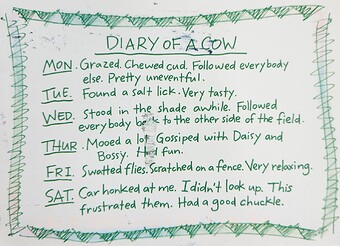 DIARY OF A COW
MON. Grazed. Chewed cud. Followed everybody
else. Pretty uneventful.
TUE. Found a salt lick. Very tasty.
WED. Stood in the shade awhile. Followed
everybody to the other side of the field.
THUR. Mooed a lot. Gossiped with Daisy and
Bossy. fun.
FRI. Swatted flies. Scratched on a fence. Very relaxing.
SAT. Car honked at me. I didn't look up. This
frustrated them. Had a good chuckle.